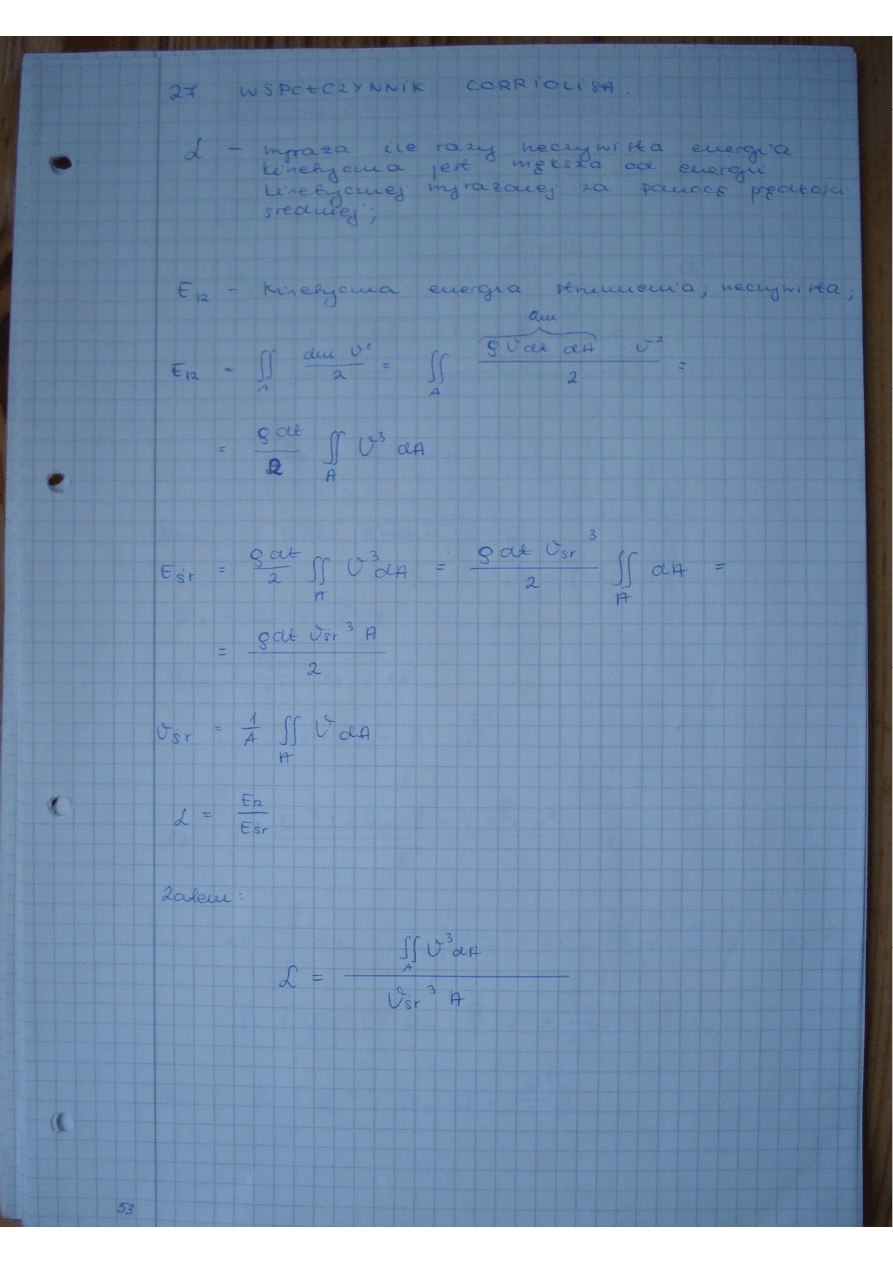 27 WSPÓŁCZYNNIK CORRIOLISA.
α – wyraża ile razy rzeczywista energia
kinetyczna jest większa od energii
kinetycznej wyrażonej za pomocą prędkości
średniej;
Ek – kinetyczna energia strumienia, rzeczywista;
dm
Ek = ∬_A dm v²/2 = ∬_A ρ v dt dA v²/2 =
= ρ dt/2 ∬_A v³ dA
Eśr = ρ dt/2 ∬_A v³ dA = ρ dt vśr³/2 ∬_A dA =
= ρ dt vśr³ A/2
vśr = 1/A ∬_A v dA
α = Ek/Eśr
Zatem:
α = ∬_A v³ dA / vśr³ A
53